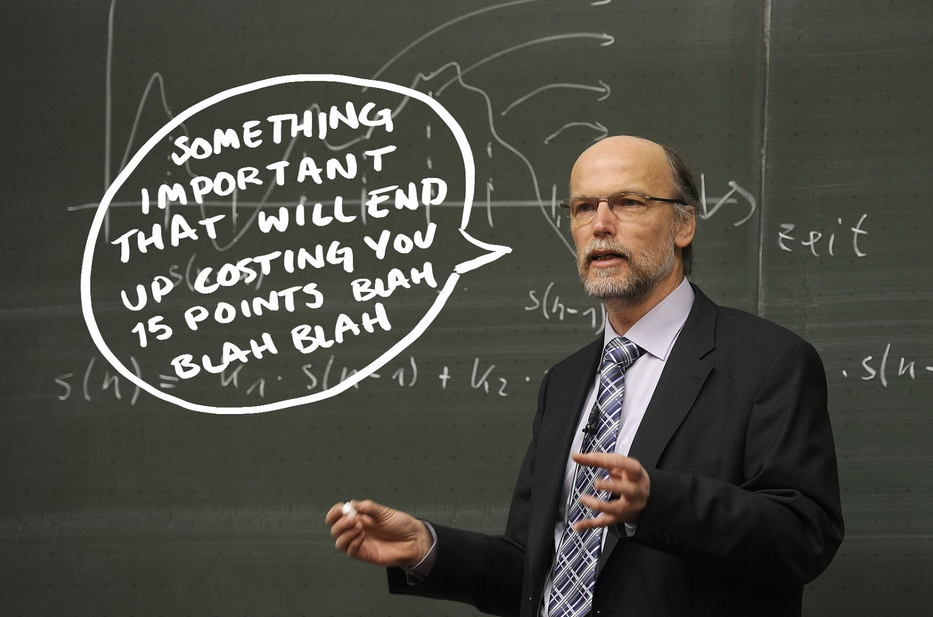 SOMETHING
IMPORTANT
THAT WILL END
UP COSTING YOU
15 POINTS BLAH
BLAH BLAH
Zeit
s(n-1)
s(n) = K₁ · s(n-1) + K₂ · · s(n-